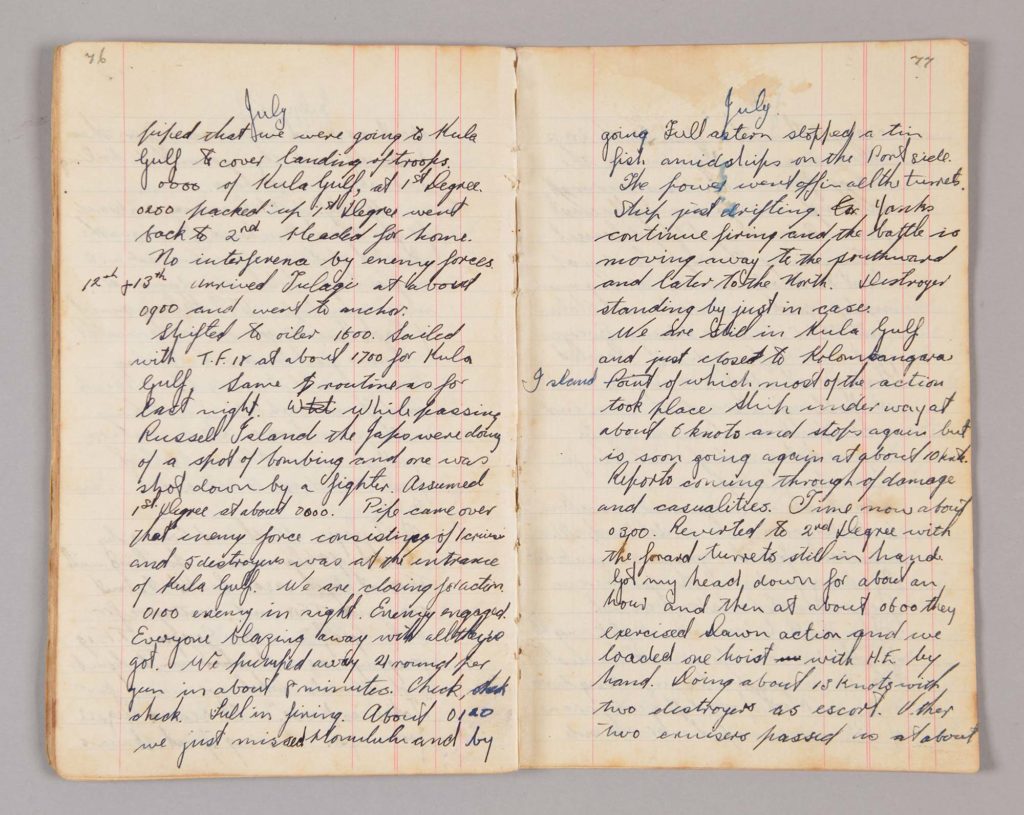 76
July
piped that we were going to Kula
Gulf to cover landing of troops.
0000 of Kula Gulf, at 1st Degree.
0200 packed up 1st Degree went
back to 2nd Headed for home.
No interference by enemy forces
12th + 13th Arrived Tulagi at about
0900 and went to anchor.
Shifted to oiler 1600. Sailed
with T.F. 18 at about 1700 for Kula
Gulf, Same routine as for
last night. While passing
Russell Island the Japs were doing
of a spot of bombing and one was
shot down by a fighter. Assumed
1st Degree at about 0000. Pipe came over
that enemy force consisting of 1 cruiser
and 5 destroyers was at the entrance
of Kula Gulf. We are closing for action
0100 enemy in sight. Enemy engaged.
Everyone blazing away with all they've
got. We pumped away 21 round per
gun in about 8 minutes. Check, check
check. Lull in firing. About 0120
we just missed Honolulu and by
77
July.
going Full astern stopped a tin
fish amidships on the Port side.
The power went off in all the turrets.
Ship just drifting. Yanks
continue firing and the battle is
moving away to the southward
and later to the North. Destroyer
standing by just in case.
We are Still in Kula Gulf
and just closest to Kolombangara
Island Point of which most of the action
took place Ship under way at
about 6 knots and stops again but
is soon going again at about 10 knts.
Reports coming through of damage
and casualities. Time now about
0300. Reverted to 2nd Degree with
the forard turrets still in hand.
Got my head down for about an
hour and then at about 0600 they
exercised Dawn action and we
loaded one hoist with H.E. by
hand. Doing about 15 Knots with
two destroyers as escort. Other
two cruisers passed us at about